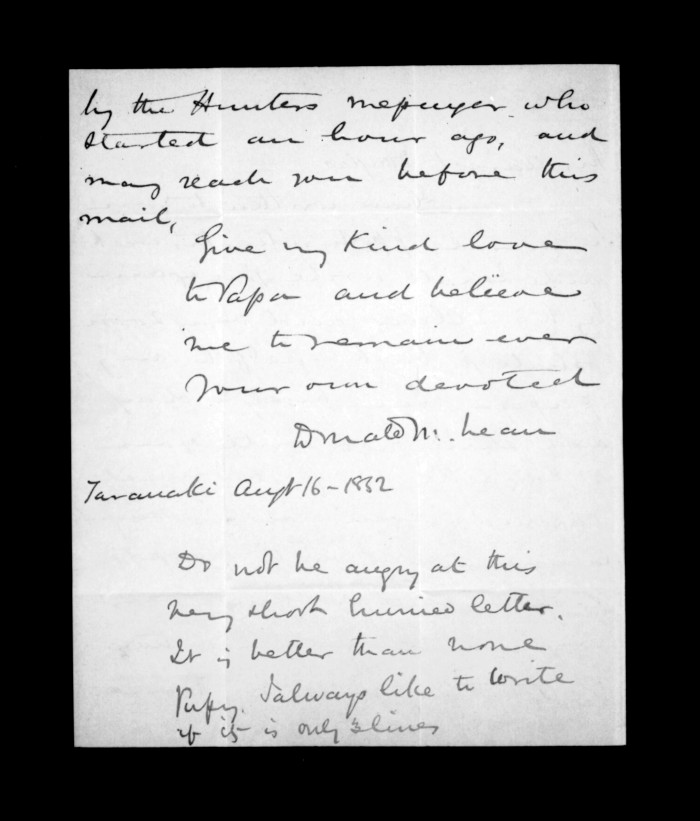 by the Hunters messenger who
started an hour ago, and
may reach you before this
mail,
Give my kind love
to Papa and believe
me to remain ever
your own devoted
Donald McLean
Taranaki Augt 16 - 1852
Do not be angry at this
very short hurried letter.
It is better than none
I always like to write
if it is only 3 lines